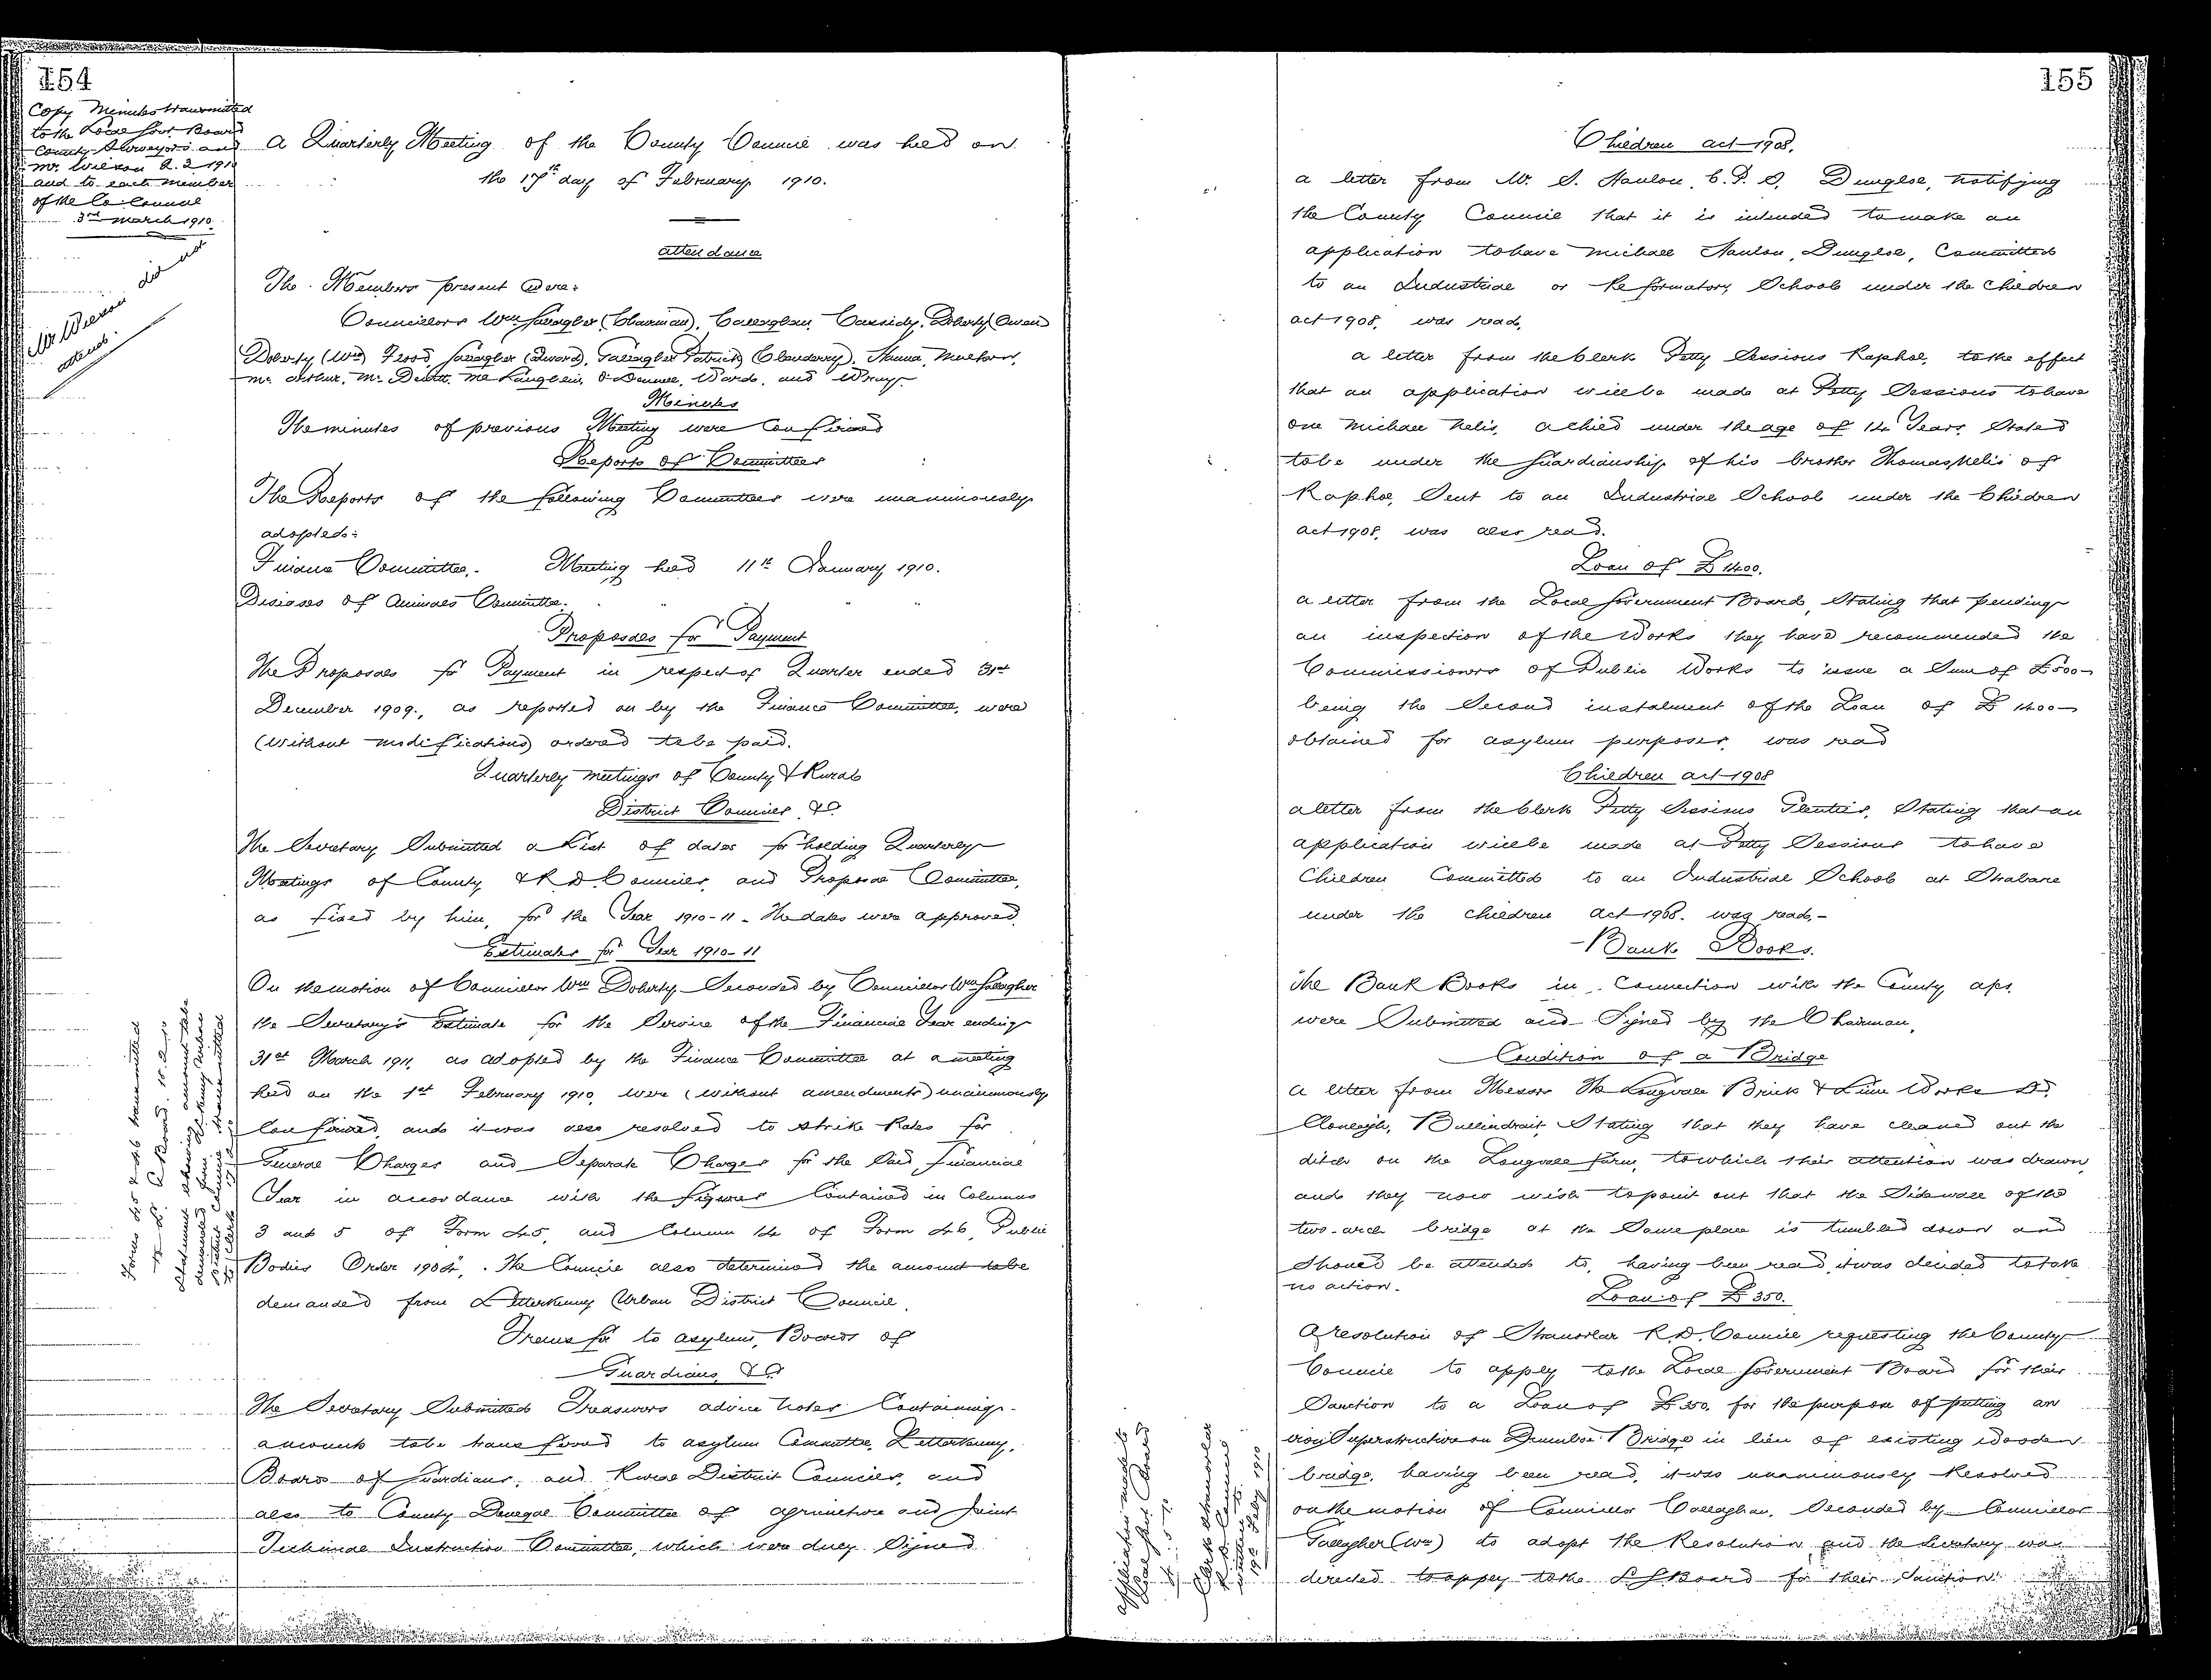 154
Copy Minutes transmitted
to the Local Govt. Board
County Surveyors and
Mr. Wilson 2.3.1910
and to each member
of the Co Council
3rd March 1910
did not
attend
A Quarterly Meeting of the County Council was held on
the 17th day of February 1910.
Attendance
The Members present were:
Councillors Wm Gallagher (Chairman), Callaghan, Cassidy, Doherty (Owen)
Doherty (Wm) Flood, Gallagher (Edward), Gallagher Patrick (Clouderry), Hanna,
Mc Arthur, Mc Devitt, Mc Laughlin, O'Donnell, Ward, and Wray.
Minutes
The minutes of previous Meeting were Confirmed
Reports of Committees
The Reports of the following Committees were unanimously
adopted:
Finance Committee. Meeting held 11th January 1910.
Diseases of Animals Committee. " " "
Proposals for Payment
The Proposals for Payment in respect of Quarter ended 31st
December 1909, as reported on by the Finance Committee, were
(without modifications) ordered to be paid.
Quarterly meetings of County & Rural
District Councils &c.
The Secretary Submitted a List of dates for holding Quarterly
Meetings of County, & R.D. Councils, and Proposal Committee,
as fixed by him, for the Year 1910-11 - The dates were approved.
Estimates for Year 1910-11
On the motion of Councillor Wm Doherty Seconded by Councillor Wm Gallagher
the Secretary's Estimate for the Service of the Financial Year ending
31st March 1911, as adopted by the Finance Committee at a meeting
held on the 1st February 1910, were (without amendments) unanimously
Confirmed, and it was also resolved to strike Rates for
General Charges and Separate Charges for the Said Financial
Year in accordance with the figures Contained in Columns
3 and 5 of Form 45, and Column 14 of Form 46, Public
Bodies Order 1904. The Council also determined the amount to be
demanded from Letterkenny Urban District Council.
Forms 45 & 46 transmitted
Statement showing amount to be
demanded from
Transfer to Asylum, Boards of
Guardians, &c
The Secretary Submitted Treasurers advice notes Containing
amounts to be transferred to Asylum Committee, Letterkenny,
Boards of Guardians, and Rural District Councils, and
also to County Donegal Committee of Agriculture and Joint
Technical Instruction Committee, which were duly Signed
155
Children Act 1908.
A letter from Mr. S. Hanlon, C.P.S. Dungloe, notifying
the County Council that it is intended to make an
application to have Michael Hanlon, Dungloe, Committed
to an Industrial or Reformatory School under the Children
Act 1908, was read.
A letter from the Clerk Petty Sessions Raphoe, to the effect
that an application will be made at Petty Sessions to have
one Michael Nelis, a child under the age of 14 Years, Stated
to be under the Guardianship of his brother Thomas Nelis of
Raphoe, Sent to an Industrial School under the Children
Act 1908, was also read.
Loan of £1400.
A letter from the Local Government Board, Stating that pending
an inspection of the Works they have recommended the
Commissioners of Public Works to issue a Sum of £500
being the Second instalment of the Loan of £1400
obtained for asylum purposes, was read
Children Act 1908
A letter from the Clerk Petty Sessions Glenties, Stating that an
application will be made at Petty Sessions to have
Children Committed to an Industrial School at Strabane
under the Children Act 1908. was read.-
Bank Books.
The Bank Books in Connection with the County a/cs.
were Submitted and Signed by the Chairman.
Condition of a Bridge
A letter from Messrs The Longvale Brick & Lime Works Ld.
Cloneigh, Ballindrait, Stating that they have cleaned out the
ditch on the Longvale farm, to which their attention was drawn,
and they now wish to point out that the Sidewall of the
two-arch bridge at the Same place is tumbled down and
Should be attended to, having been read, it was decided to take
no action.
Loan of £350.
A resolution of Stranorlar R.D. Council requesting the County
Council to apply to the Local Government Board for their
Sanction to a Loan of £350. for the purpose of putting an
iron Superstructure on Drumboe Bridge in lieu of existing wooden
bridge, having been read, it was unanimously Resolved
on the motion of Councillor Callaghan, Seconded by Councillor
Gallagher (Wm) to adopt the Resolution, and the Secretary was
directed to apply to the L G Board for their Sanction.
Application made to
Local Govt. Board
Clerk Stranorlar
R.D. Council
19th Feby 1910